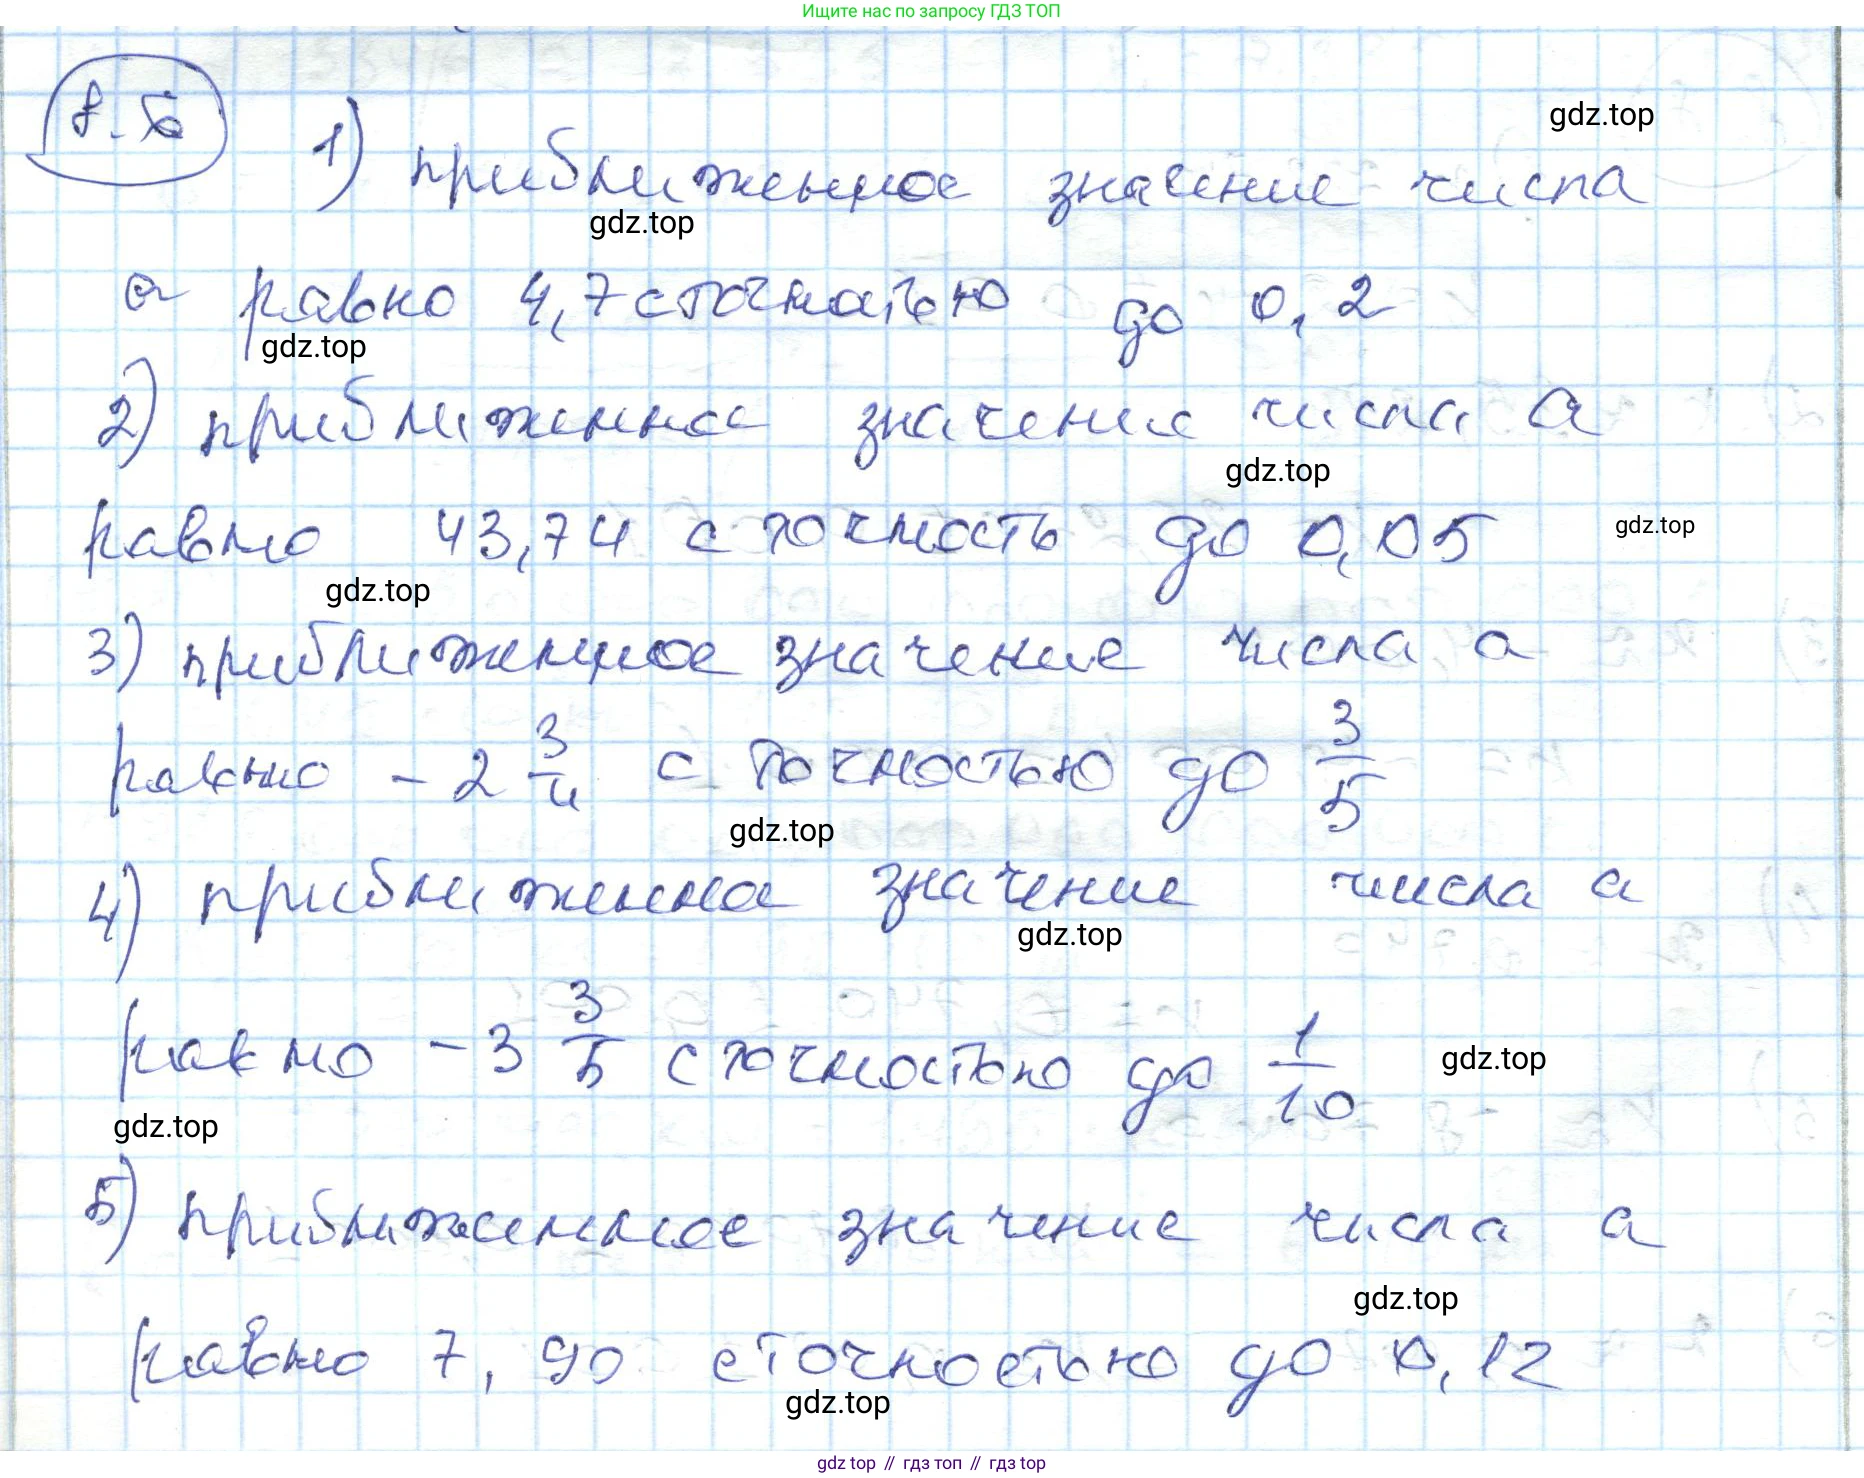 Ищите нас по запросу ГДЗ ТОП
8.6
gdz.top
1) приближенное значение числа
gdz.top
a равно 4,7 с точностью до 0,2
gdz.top
2) приближенное значение числа a
gdz.top
равно 43,74 с точность до 0,05
gdz.top
gdz.top
3) приближенное значение числа a
равно -2 3/4 с точностью до 3/5
gdz.top
4) приближенное значение числа a
gdz.top
равно -3 3/5 с точностью до 1/10
gdz.top
gdz.top
5) приближенное значение числа a
gdz.top
равно 7,90 с точностью до 0,12
gdz.top
gdz top // гдз топ // гдз top